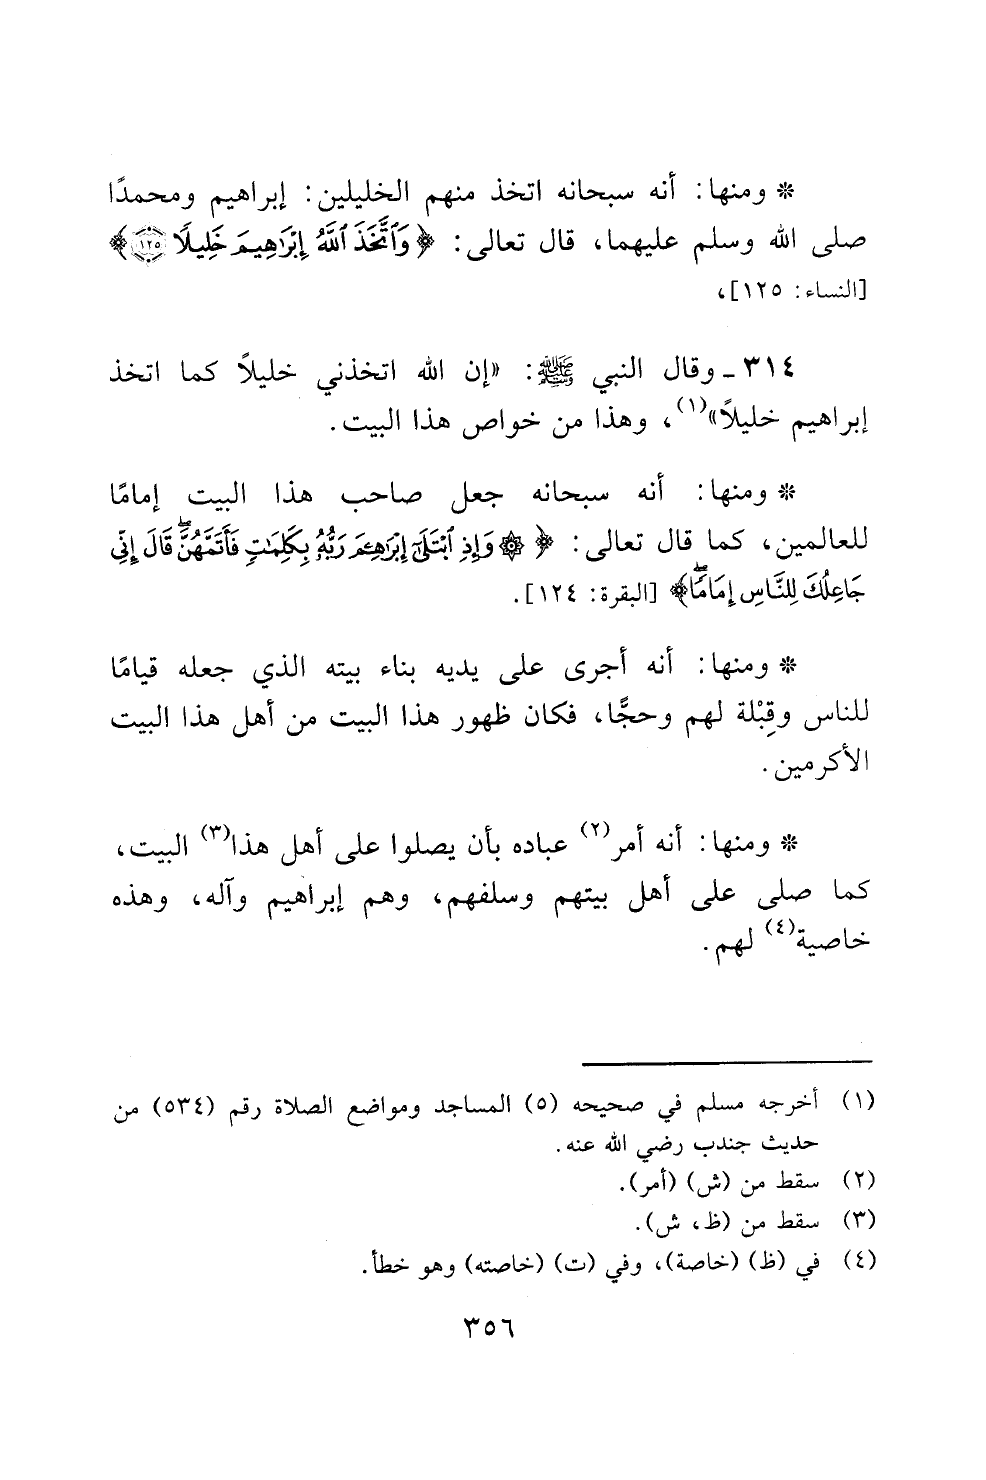 * ومنها: أنه سبحانه اتخذ منهم الخليلين: إبراهيم ومحمدًا
صلى الله وسلم عليهما، قال تعالى: ﴿وَٱتَّخَذَ ٱللَّهُ إِبْرَٰهِيمَ خَلِيلًا ١٢٥﴾
[النساء: ١٢٥]،
٣١٤ ـ وقال النبي ﷺ: «إن الله اتخذني خليلاً كما اتخذ
إبراهيم خليلاً»(١)، وهذا من خواص هذا البيت.
* ومنها: أنه سبحانه جعل صاحب هذا البيت إمامًا
للعالمين، كما قال تعالى: ﴿۞ وَإِذِ ٱبْتَلَىٰٓ إِبْرَٰهِـۧمَ رَبُّهُۥ بِكَلِمَٰتٍ فَأَتَمَّهُنَّۖ قَالَ إِنِّي
جَاعِلُكَ لِلنَّاسِ إِمَامًاۖ﴾ [البقرة: ١٢٤].
* ومنها: أنه أجرى على يديه بناء بيته الذي جعله قيامًا
للناس وقِبْلة لهم وحجًّا، فكان ظهور هذا البيت من أهل هذا البيت
الأكرمين.
* ومنها: أنه أمر(٢) عباده بأن يصلوا على أهل هذا(٣) البيت،
كما صلى على أهل بيتهم وسلفهم، وهم إبراهيم وآله، وهذه
خاصية(٤) لهم.
(١) أخرجه مسلم في صحيحه (٥) المساجد ومواضع الصلاة رقم (٥٣٤) من
حديث جندب رضي الله عنه.
(٢) سقط من (ش) (أمر).
(٣) سقط من (ظ، ش).
(٤) في (ظ) (خاصة)، وفي (ت) (خاصته) وهو خطأ.
٣٥٦